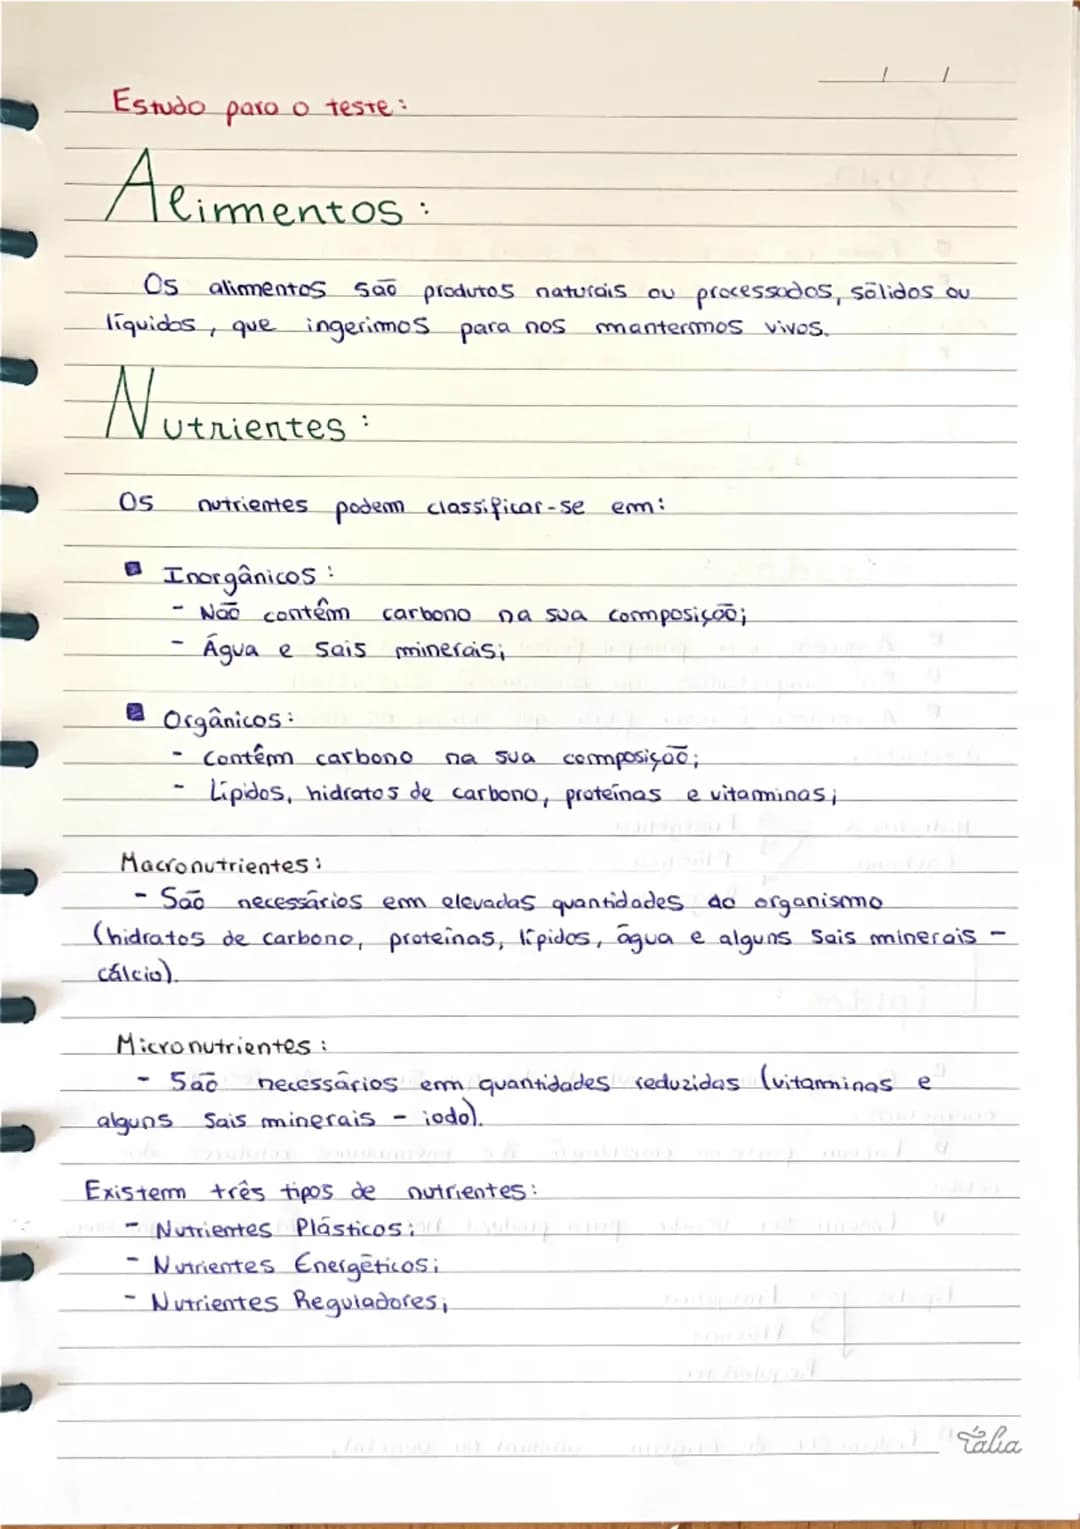 / /
Estudo para o teste:
Alimentos:
Os alimentos são produtos naturais ou processados, sólidos ou
líquidos, que ingerimos para nos mantermos vivos.
Nutrientes:
Os nutrientes podem classificar-se em:
Inorgânicos:
- Não contêm carbono na sua composição;
- Água e Sais minerais;
Orgânicos:
- Contêm carbono na sua composição;
- Lípidos, hidratos de carbono, proteínas e vitaminas;
Macronutrientes:
- São necessários em elevadas quantidades ao organismo
(hidratos de carbono, proteínas, lípidos, água e alguns Sais minerais -
cálcio).
Micronutrientes:
- São necessários em quantidades reduzidas (vitaminas e
alguns Sais minerais - iodo).
Existem três tipos de nutrientes:
- Nutrientes Plásticos;
- Nutrientes Energéticos;
- Nutrientes Reguladores;
Tália